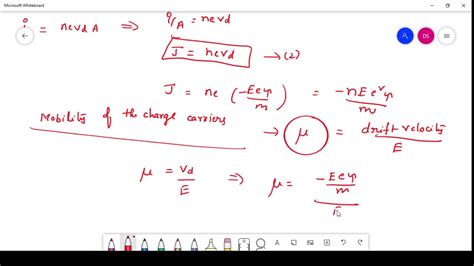 Microsoft Whiteboard
i = nevdA ⇒ i/A = nevd
J = nevd → (2)
DS
J = ne (-Eeγ/m) = -nEe²γ/m
Mobility of the charge carriers → μ = drift velocity/E
μ = vd/E ⇒ μ = -Eeγ/m / E